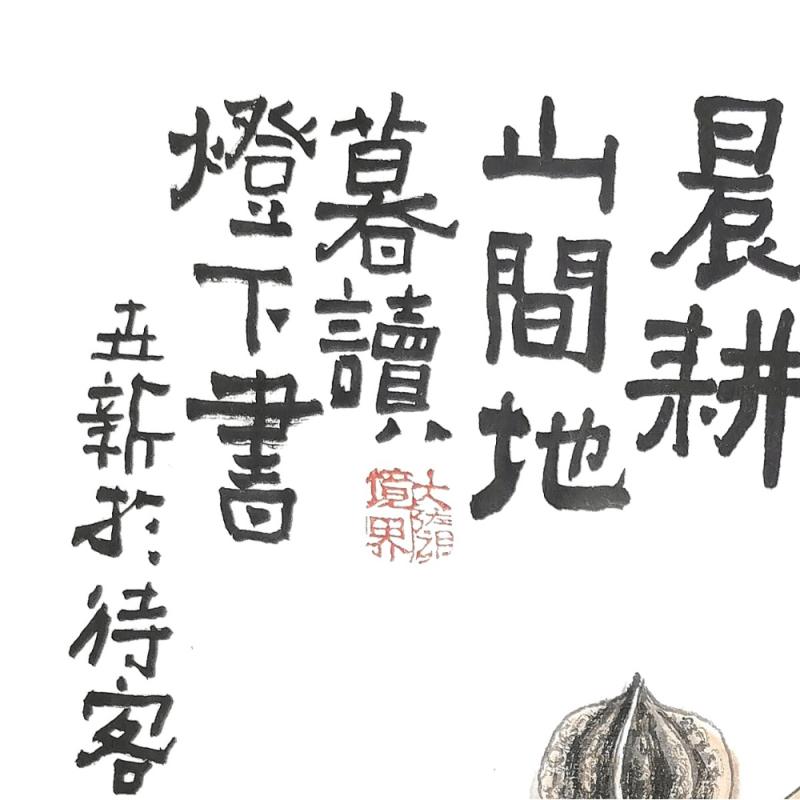 晨耕
山間地
暮讀
燈下書
世新於待客
境界